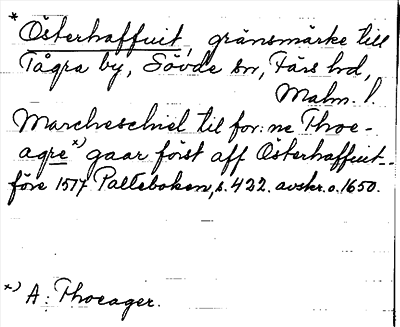 * Österhaffuit, gränsmärke till
Tågra by, Sövde sn, Färs hd,
Malm. l.
Marcheschiel til for:ne Thoe-
agre *) gaar först aff Österhaffuit -
före 1517 Palteboken, s. 422. avskr. o. 1650.
*) A: Thoeager.